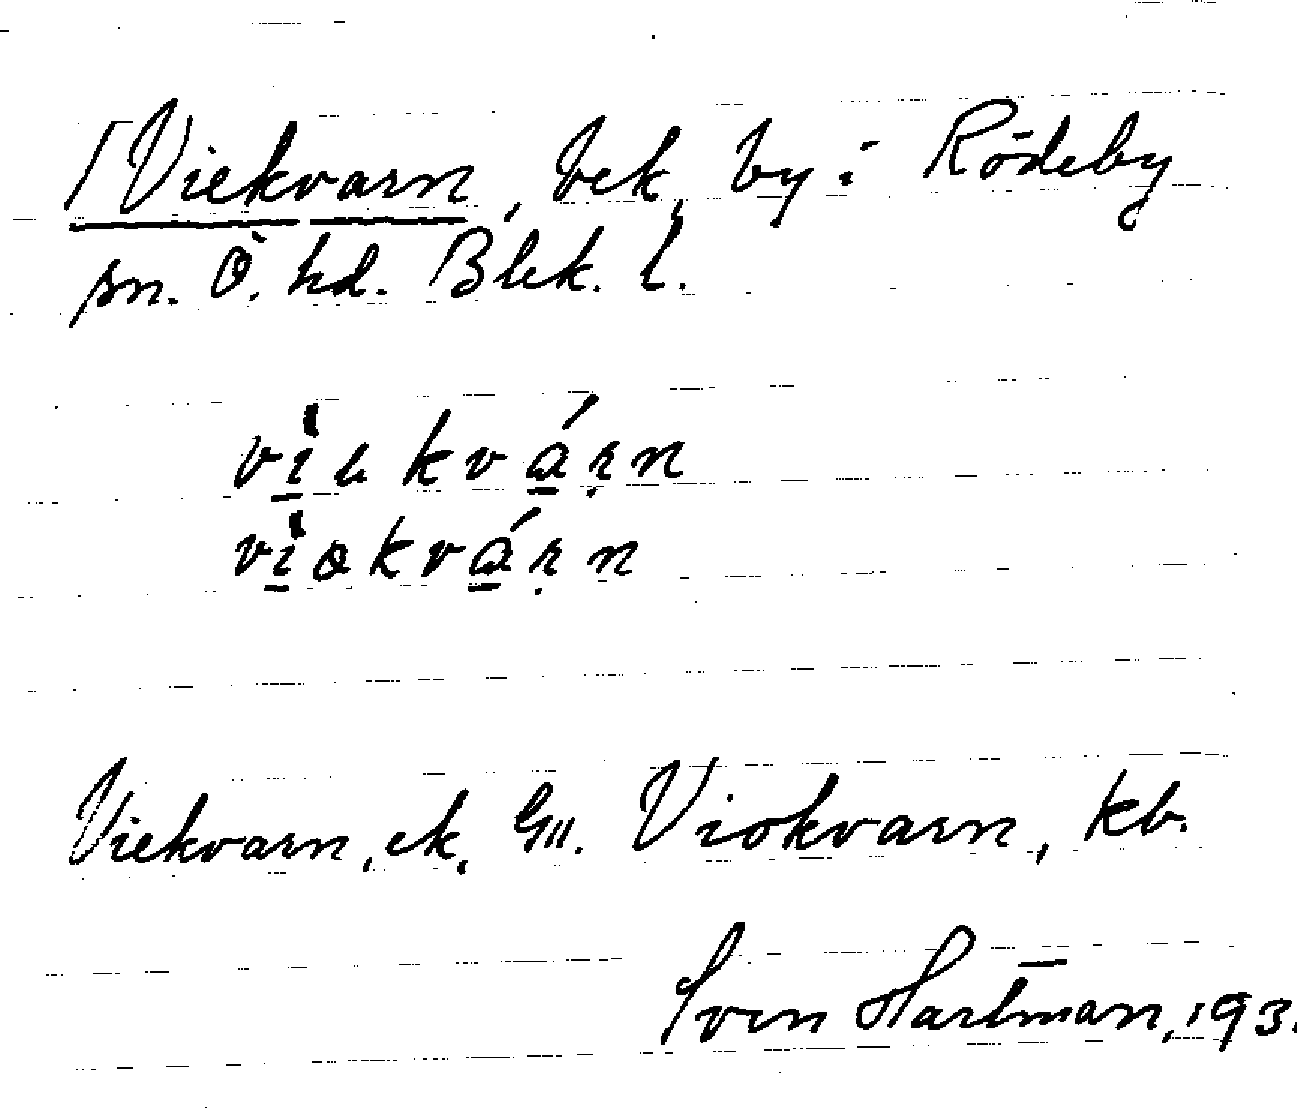 Viekvarn, bek. by i Rödeby
sn. Ö. hd. Blek. l.
viokvarn
Viekvarn, ek. Gll. Viokvarn, kb.
Sven Hartman, 193